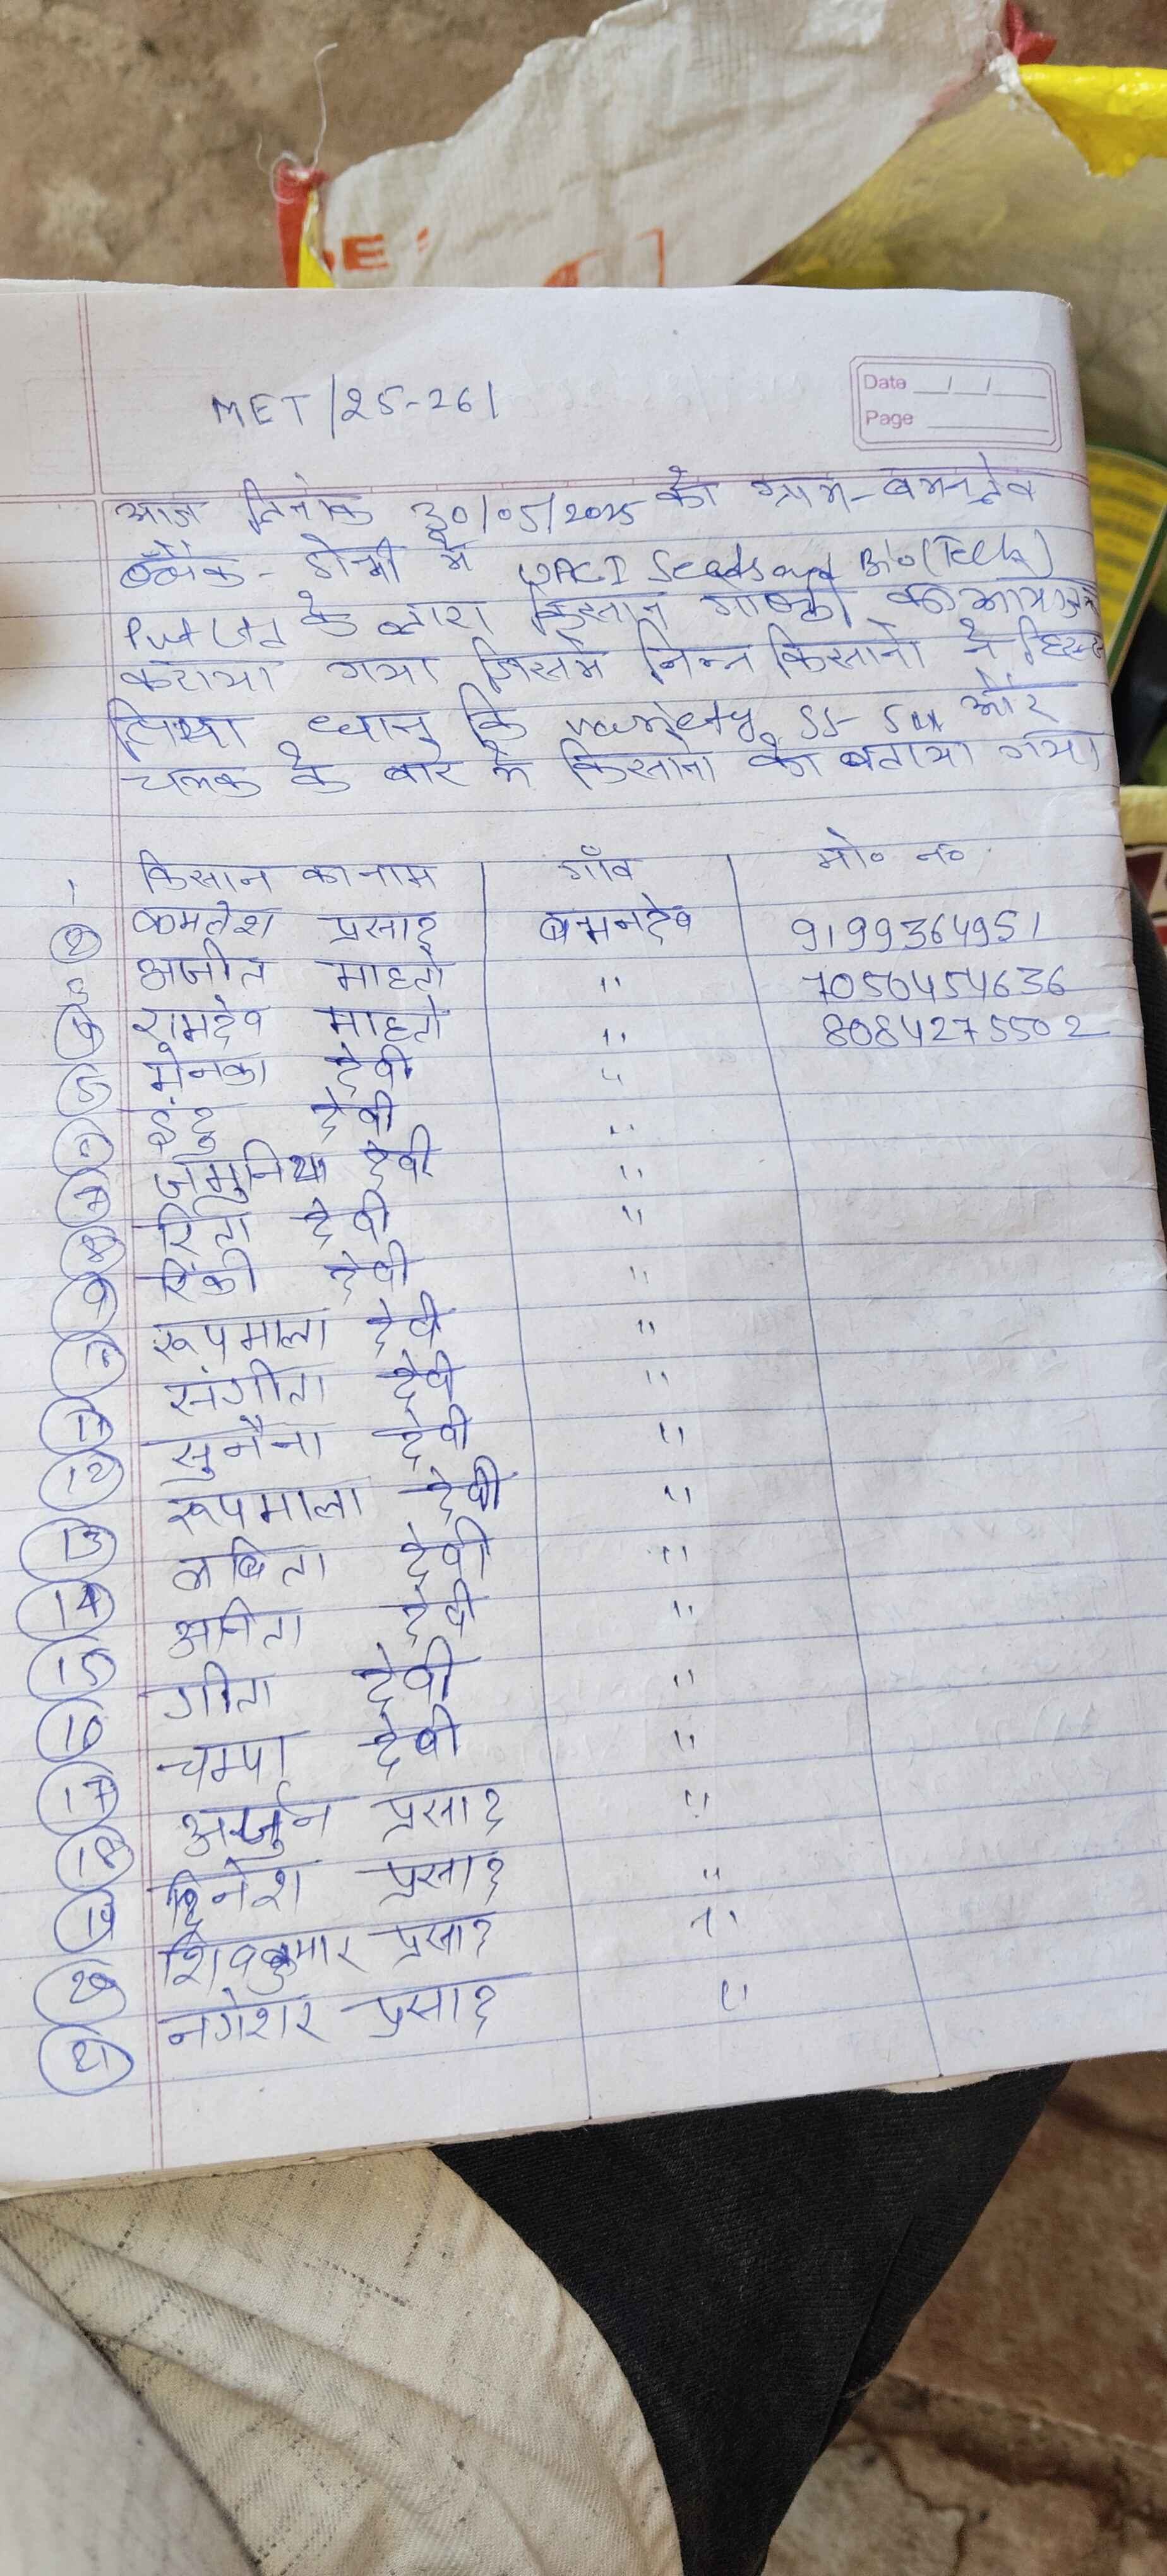 MET/25-26/
Date __/__/__
Page
आज दिनांक 30/05/2025 को ग्राम-बमनदेव
ब्लॉक - डोभी में Seeds and Bio(Tech)
Pvt Ltd के द्वारा किसान गोष्ठी का आयोजन
कराया गया जिसमे निम्न किसानो ने हिस्सा
लिया धान कि variety SS-5 और
चमक के बारे मे किसानो को बताया गया
1 किसान का नाम गाँव मो० न०
2 कमलेश प्रसाद बमनदेव 9199364951
3 अजीत माहतो " 7050454636
4 रामदेव माहतो " 8084275502
5 मेनका देवी "
6 इंदु देवी "
7 जमुनिया देवी "
8 रिता देवी "
9 रिंकी देवी "
10 रूपमाला देवी "
11 संगीता देवी "
12 सुनैना देवी "
13 रूपमाला देवी "
14 देवी "
15 अनिता देवी "
16 गीता देवी "
17 चम्पा देवी "
18 अर्जुन प्रसाद "
19 दिनेश प्रसाद "
20 शिवकुमार प्रसाद "
21 नगेशर प्रसाद "